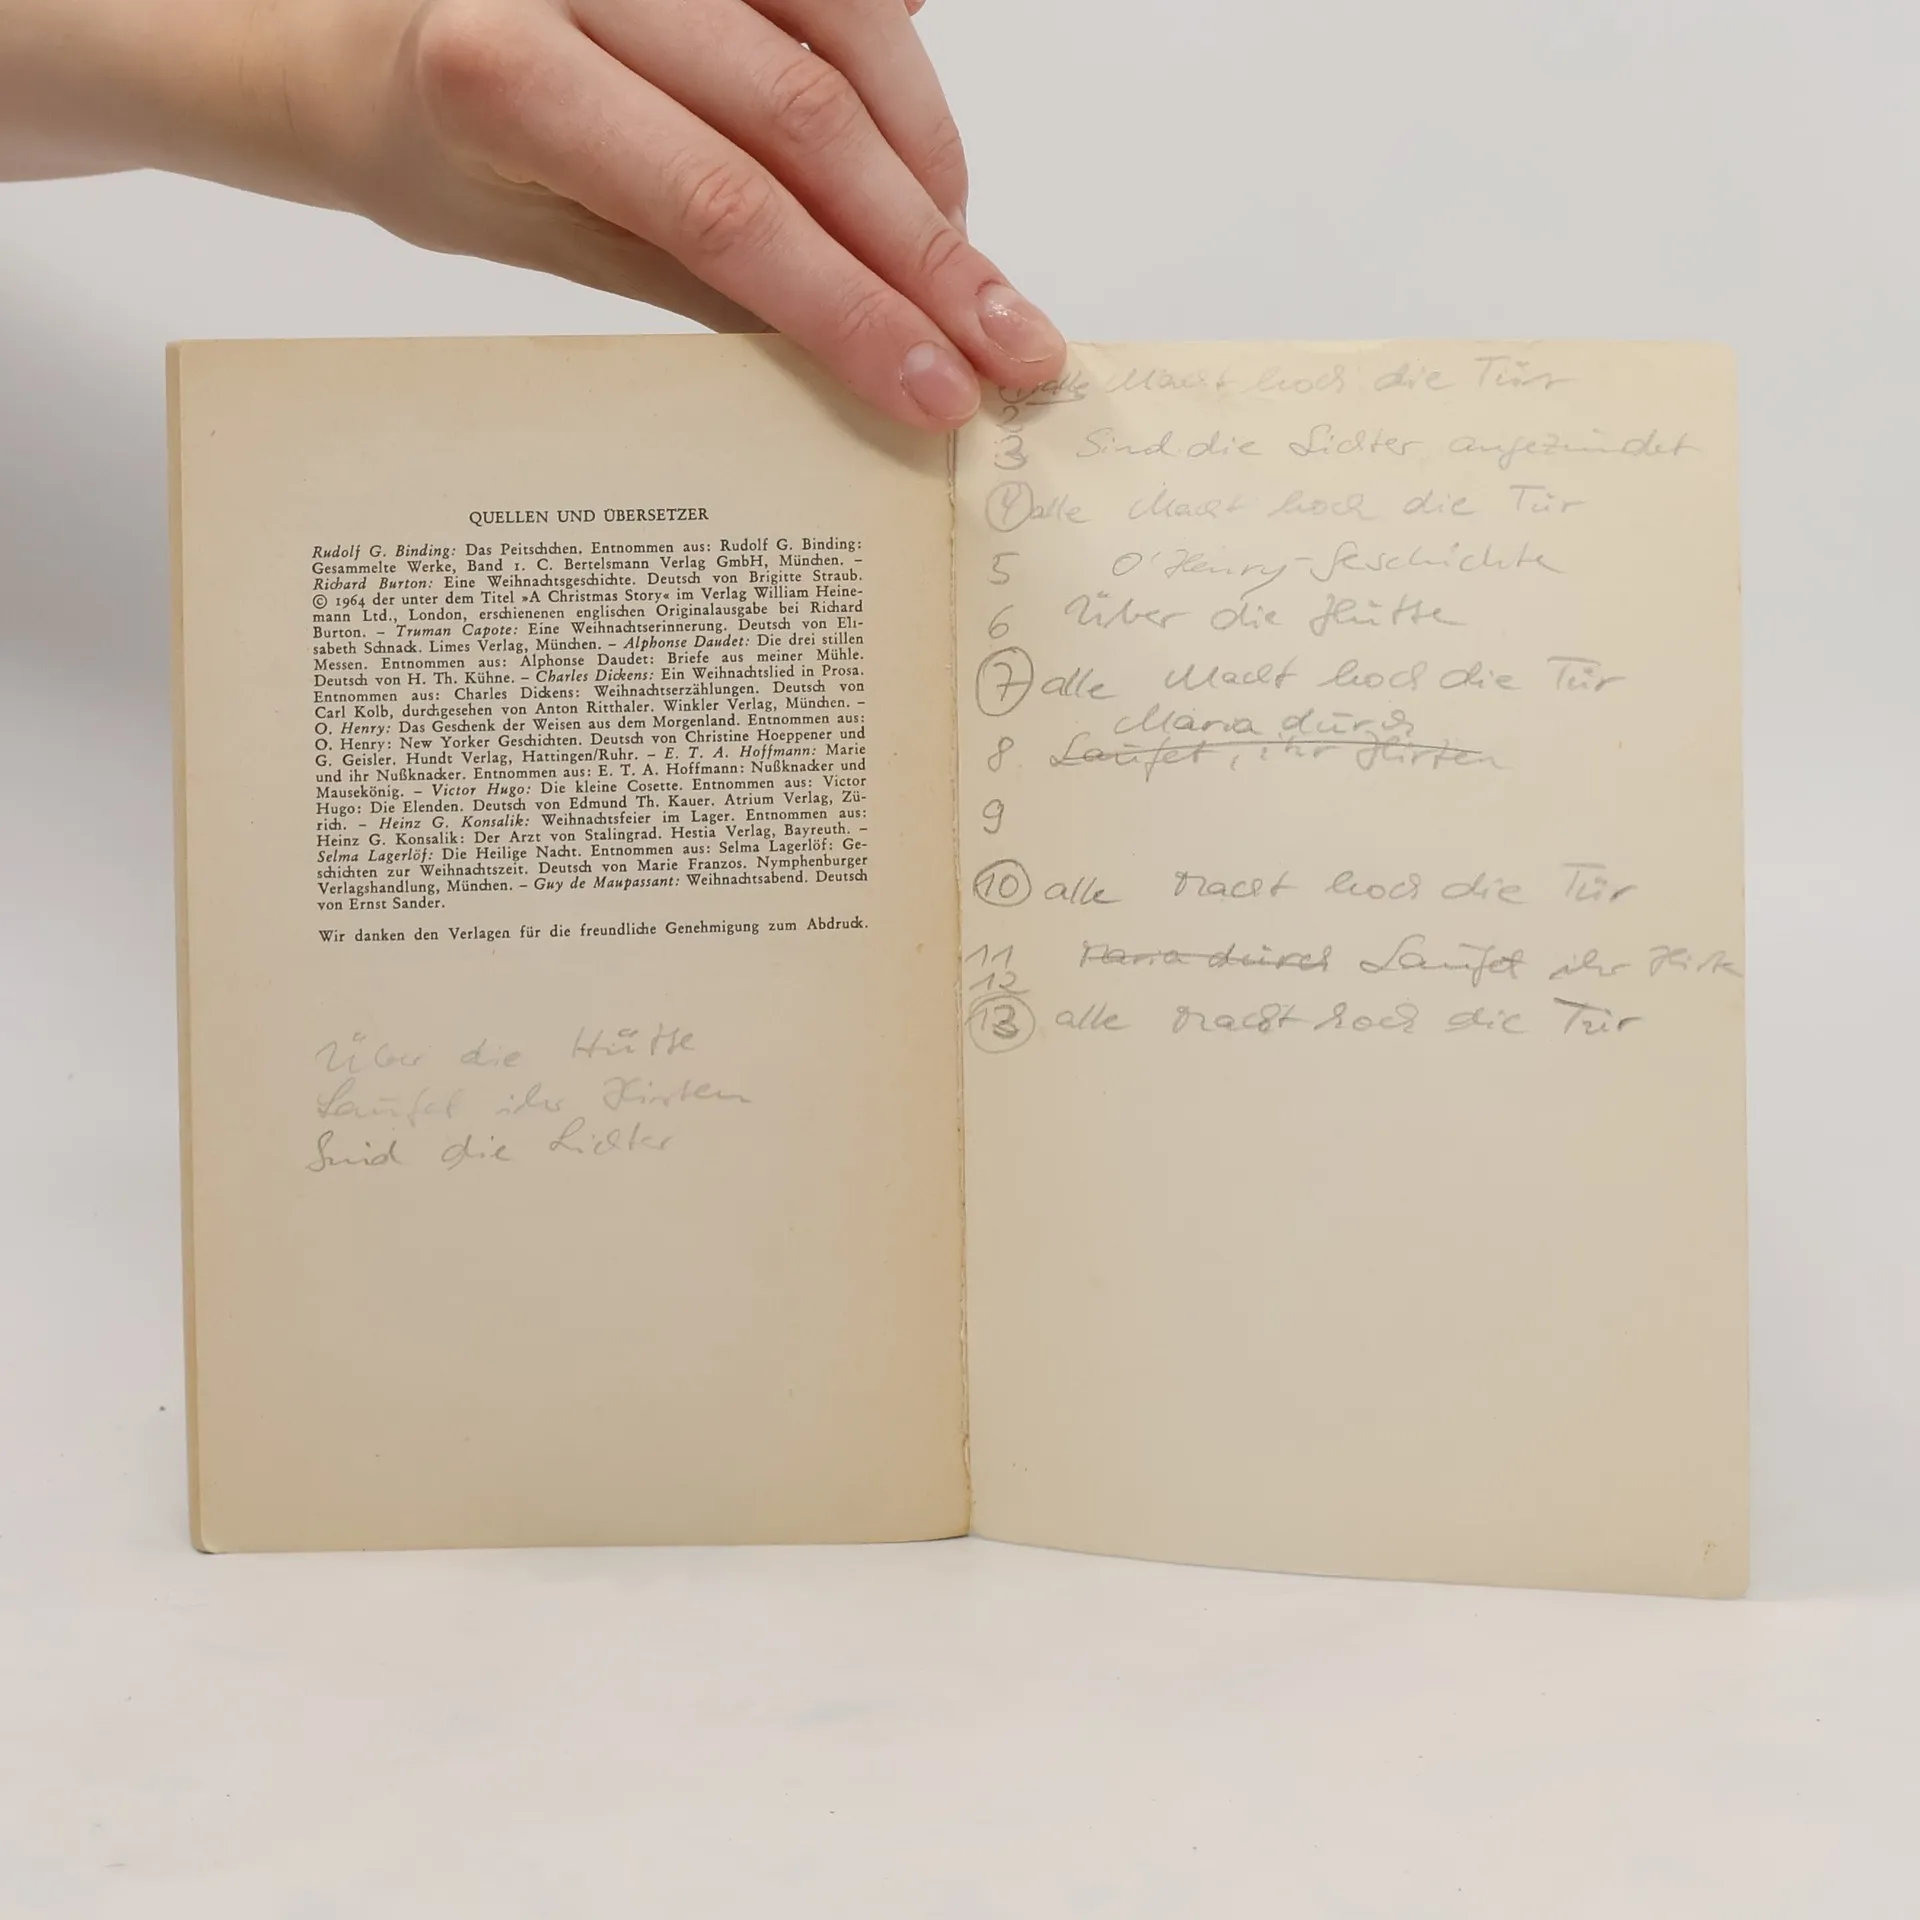 QUELLEN UND ÜBERSETZER
Rudolf G. Binding: Das Peitschchen. Entnommen aus: Rudolf G. Binding:
Gesammelte Werke, Band 1. C. Bertelsmann Verlag GmbH, München. –
Richard Burton: Eine Weihnachtsgeschichte. Deutsch von Brigitte Straub.
© 1964 der unter dem Titel »A Christmas Story« im Verlag William Heine-
mann Ltd., London, erschienenen englischen Originalausgabe bei Richard
Burton. – Truman Capote: Eine Weihnachtserinnerung. Deutsch von Eli-
sabeth Schnack. Limes Verlag, München. – Alphonse Daudet: Die drei stillen
Messen. Entnommen aus: Alphonse Daudet: Briefe aus meiner Mühle.
Deutsch von H. Th. Kühne. – Charles Dickens: Ein Weihnachtslied in Prosa.
Entnommen aus: Charles Dickens: Weihnachtserzählungen. Deutsch von
Carl Kolb, durchgesehen von Anton Ritthaler. Winkler Verlag, München. –
O. Henry: Das Geschenk der Weisen aus dem Morgenland. Entnommen aus:
O. Henry: New Yorker Geschichten. Deutsch von Christine Hoeppener und
G. Geisler. Hundt Verlag, Hattingen/Ruhr. – E. T. A. Hoffmann: Marie
und ihr Nußknacker. Entnommen aus: E. T. A. Hoffmann: Nußknacker und
Mausekönig. – Victor Hugo: Die kleine Cosette. Entnommen aus: Victor
Hugo: Die Elenden. Deutsch von Edmund Th. Kauer. Atrium Verlag, Zü-
rich. – Heinz G. Konsalik: Weihnachtsfeier im Lager. Entnommen aus:
Heinz G. Konsalik: Der Arzt von Stalingrad. Hestia Verlag, Bayreuth. –
Selma Lagerlöf: Die Heilige Nacht. Entnommen aus: Selma Lagerlöf: Ge-
schichten zur Weihnachtszeit. Deutsch von Marie Franzos. Nymphenburger
Verlagshandlung, München. – Guy de Maupassant: Weihnachtsabend. Deutsch
von Ernst Sander.
Wir danken den Verlagen für die freundliche Genehmigung zum Abdruck.
Über die Hütte
Laufet ihr Hirten
Sind die Lichter
1 alle Macht hoch die Tür
2
3 Sind die Lichter angezündet
4 alle Macht hoch die Tür
5 O'Henry-Geschichte
6 Über die Hütte
7 alle Macht hoch die Tür
Maria durch
8. Laufet, ihr Hirten
9
10 alle Macht hoch die Tür
11 Maria durch Laufet ihr Hirte
12
13 alle Macht hoch die Tür